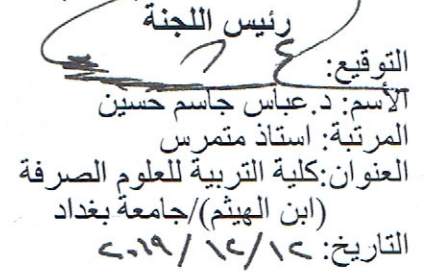 رئيس اللجنة
التوقيع:
الأسم: د.عباس جاسم حسين
المرتبة: استاذ متمرس
العنوان:كلية التربية للعلوم الصرفة
(ابن الهيثم)/جامعة بغداد
التاريخ: ١٢/ ١٢/ ٢٠١٩